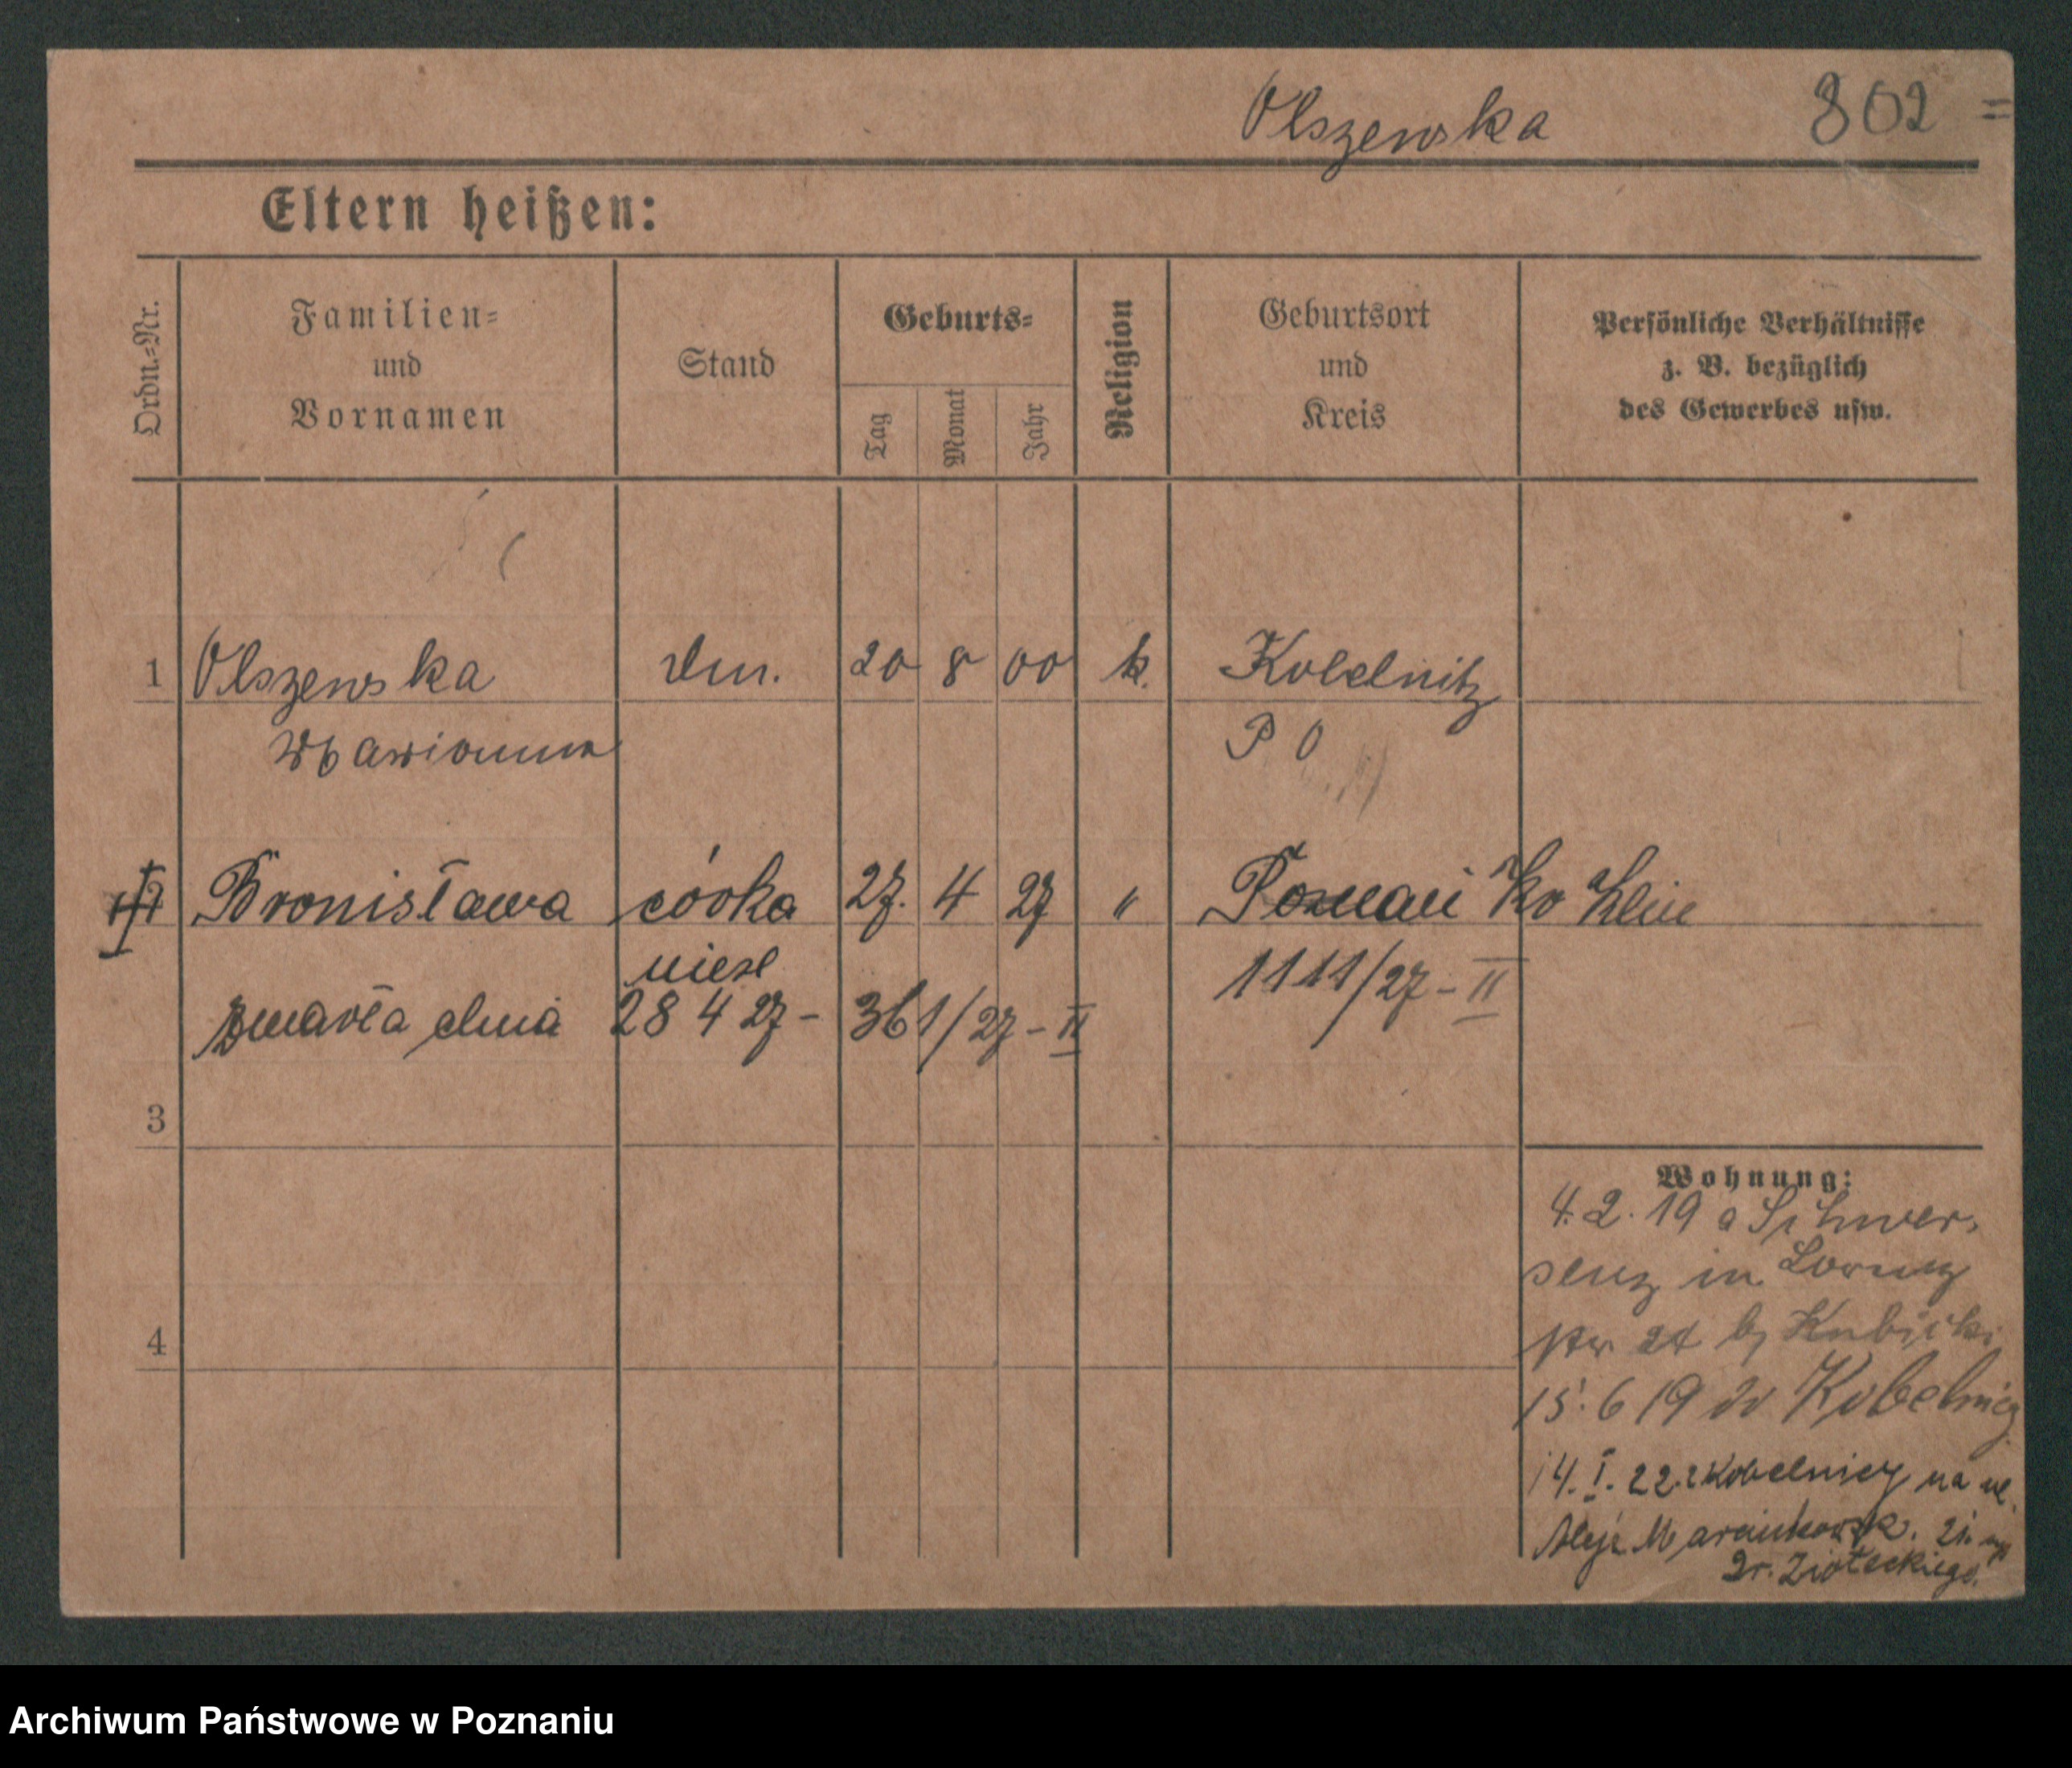 Olszewska 802 =
Eltern heißen:
Ordn.=Nr.
Familien=
und
Vornamen
Stand
Geburts=
Tag
Monat
Jahr
Religion
Geburtsort
und
Kreis
Persönliche Verhältnisse
z. B. bezüglich
des Gewerbes usw.
1 Olszewska 20 8 00 k. Kobelnitz
Marianna P O
2 Bronisława córka 27. 4 27 " Poznań
nieśl 1111/27 - II
zmarła dnia 28 4 27 - 361/27 - II
3
4
Wohnung:
4. 2. 19 a Schwer-
senz in Lorenz
str 24 b Kubicki
15. 6 19 do Kobelnicy
14. I. 22. z Kobelnicy na ul.
Aleje Marcinkowsk. 21.
Dr. Ziołeckiego.
Archiwum Państwowe w Poznaniu